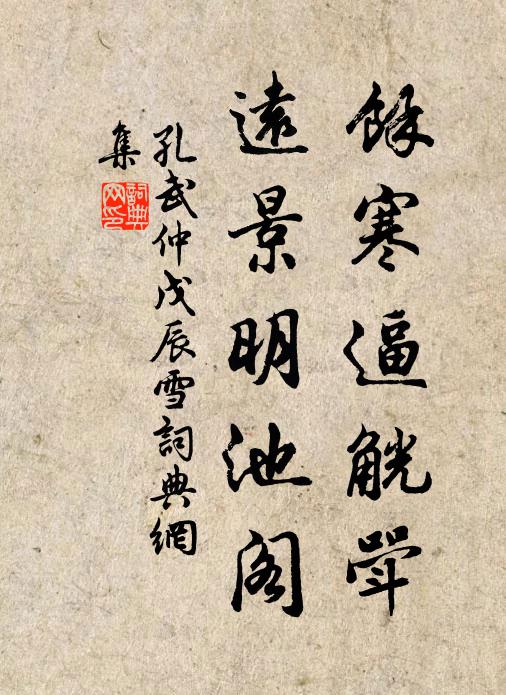 餘寒逼觥斝
遠景明池阁
孔武仲戊辰雪詞典網
集
詞典
网印